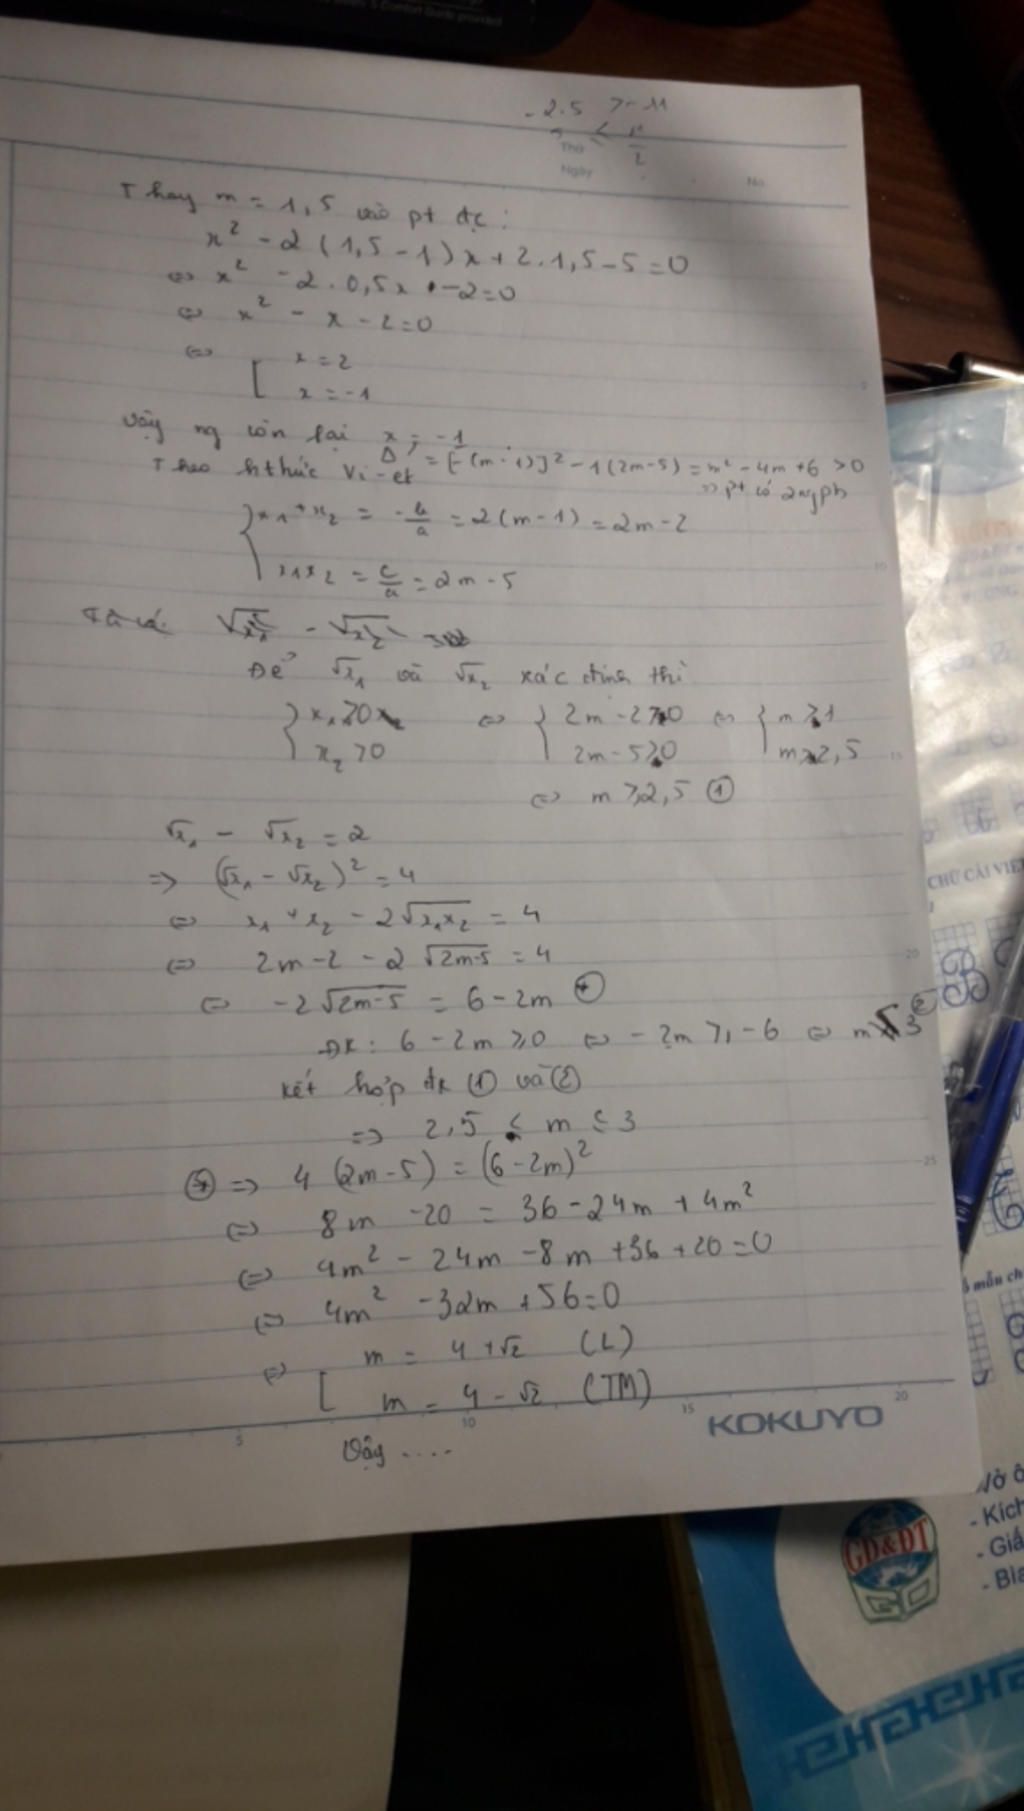 - 2.5 > - 11
Thứ
Ngày
No
Thay m = 1,5 vào pt đc :
x² - 2 (1,5 - 1) x + 2.1,5 - 5 = 0
⇔ x² - 2.0,5x - 2 = 0
⇔ x² - x - 2 = 0
⇔ [ x = 2
x = -1
Vậy ng còn lại x = -1
Δ' = [-(m-1)]² - 1(2m-5) = m² - 4m + 6 > 0
Theo hthức Vi-et
=> pt có 2 ng pb
{ x₁ + x₂ = -b/a = 2(m-1) = 2m-2
x₁x₂ = c/a = 2m-5
Ta có
Để √x₁ và √x₂ xác định thì
{ x₁ ≥ 0 ⇔ { 2m - 2 ≥ 0 ⇔ { m ≥ 1
x₂ ≥ 0 2m - 5 ≥ 0 m ≥ 2,5
⇔ m ≥ 2,5 ①
√x₁ - √x₂ = 2
=> (√x₁ - √x₂)² = 4
⇔ x₁ + x₂ - 2√x₁x₂ = 4
⇔ 2m - 2 - 2√2m-5 = 4
⇔ -2√2m-5 = 6 - 2m (*)
ĐK : 6 - 2m ≥ 0 ⇔ -2m ≥ -6 ⇔ m ≤ 3 ②
Kết hợp đk ① và ②
=> 2,5 ≤ m ≤ 3
(*) => 4 (2m - 5) = (6 - 2m)²
⇔ 8m - 20 = 36 - 24m + 4m²
⇔ 4m² - 24m - 8m + 36 + 20 = 0
⇔ 4m² - 32m + 56 = 0
⇔ [ m = 4 + √2 (L)
m = 4 - √2 (TM)
Vậy ....
5 10 15 20
KOKUYO
CHỮ CÁI VIẾ
mẫu ch
Vở ô
- Kích
- Giấ
- Bìa
GD&ĐT